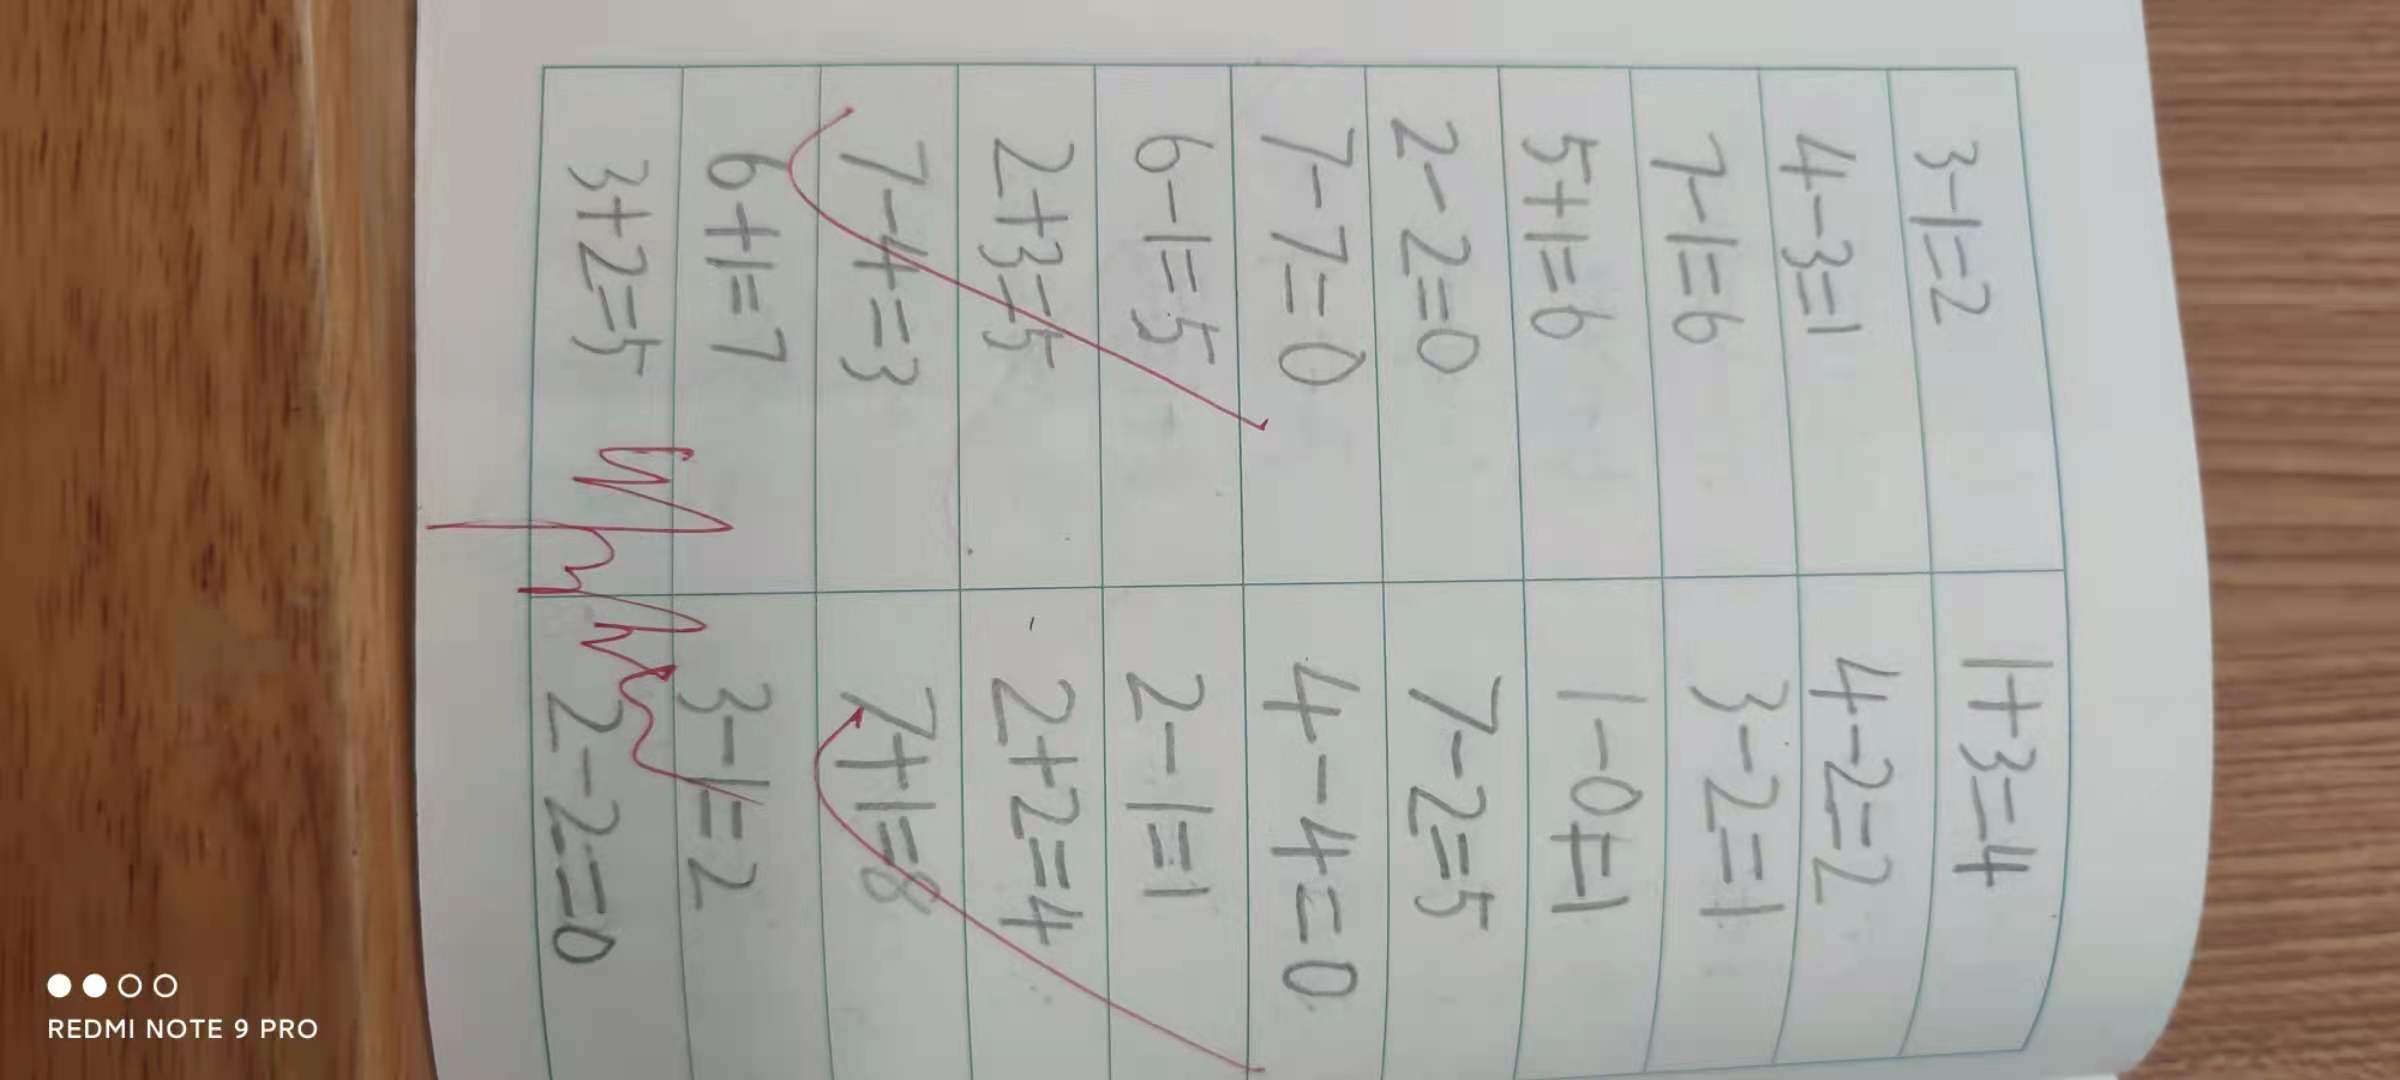 3-1=2 1+3=4
4-3=1 4-2=2
7-1=6 3-2=1
5+1=6 1-0=1
2-2=0 7-2=5
7-7=0 4-4=0
6-1=5 2-1=1
2+3=5 2+2=4
7-4=3 7+1=8
6+1=7 3-1=2
3+2=5 2-2=0
REDMI NOTE 9 PRO